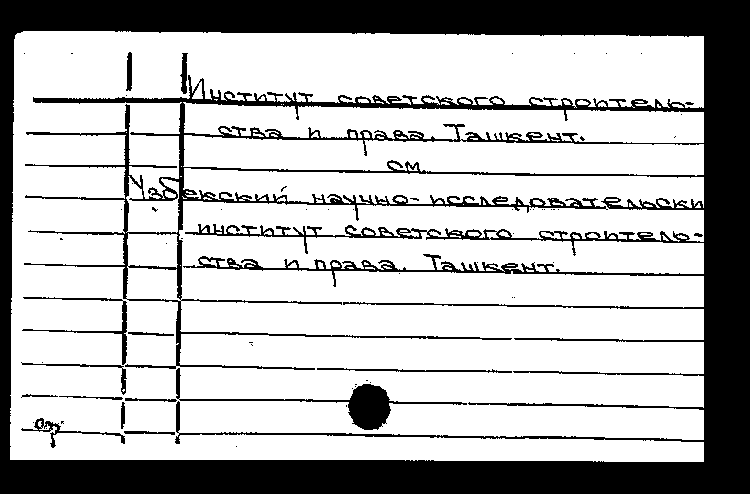 Институт советского строитель-
ства и права. Ташкент.
см.
Узбекский научно-исследовательски
институт советского строитель-
ства и права. Ташкент.